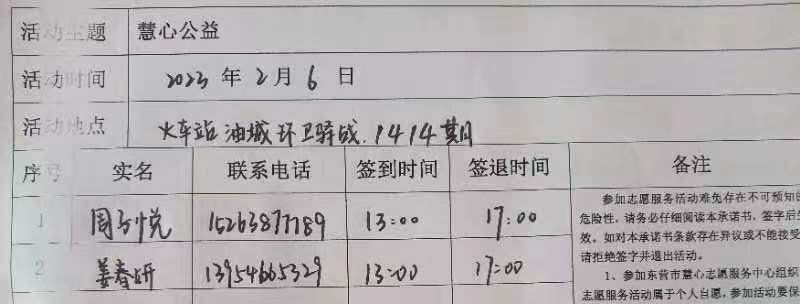 活动主题 慧心公益
活动时间 2023年2月6日
活动地点 火车站油城环卫驿站.1414期
序号 实名 联系电话 签到时间 签退时间 备注
1 周子悦 15263877789 13:00 17:00
2 姜春妍 13954665329 13:00 17:00
参加志愿服务活动难免存在不可预知的
危险性，请务必仔细阅读本承诺书，签字后生
效。如对本承诺书条款存在异议或不能接受
请拒绝签字并退出活动。
1、参加东营市慧心志愿服务中心组织
志愿服务活动属于个人自愿，参加活动要保